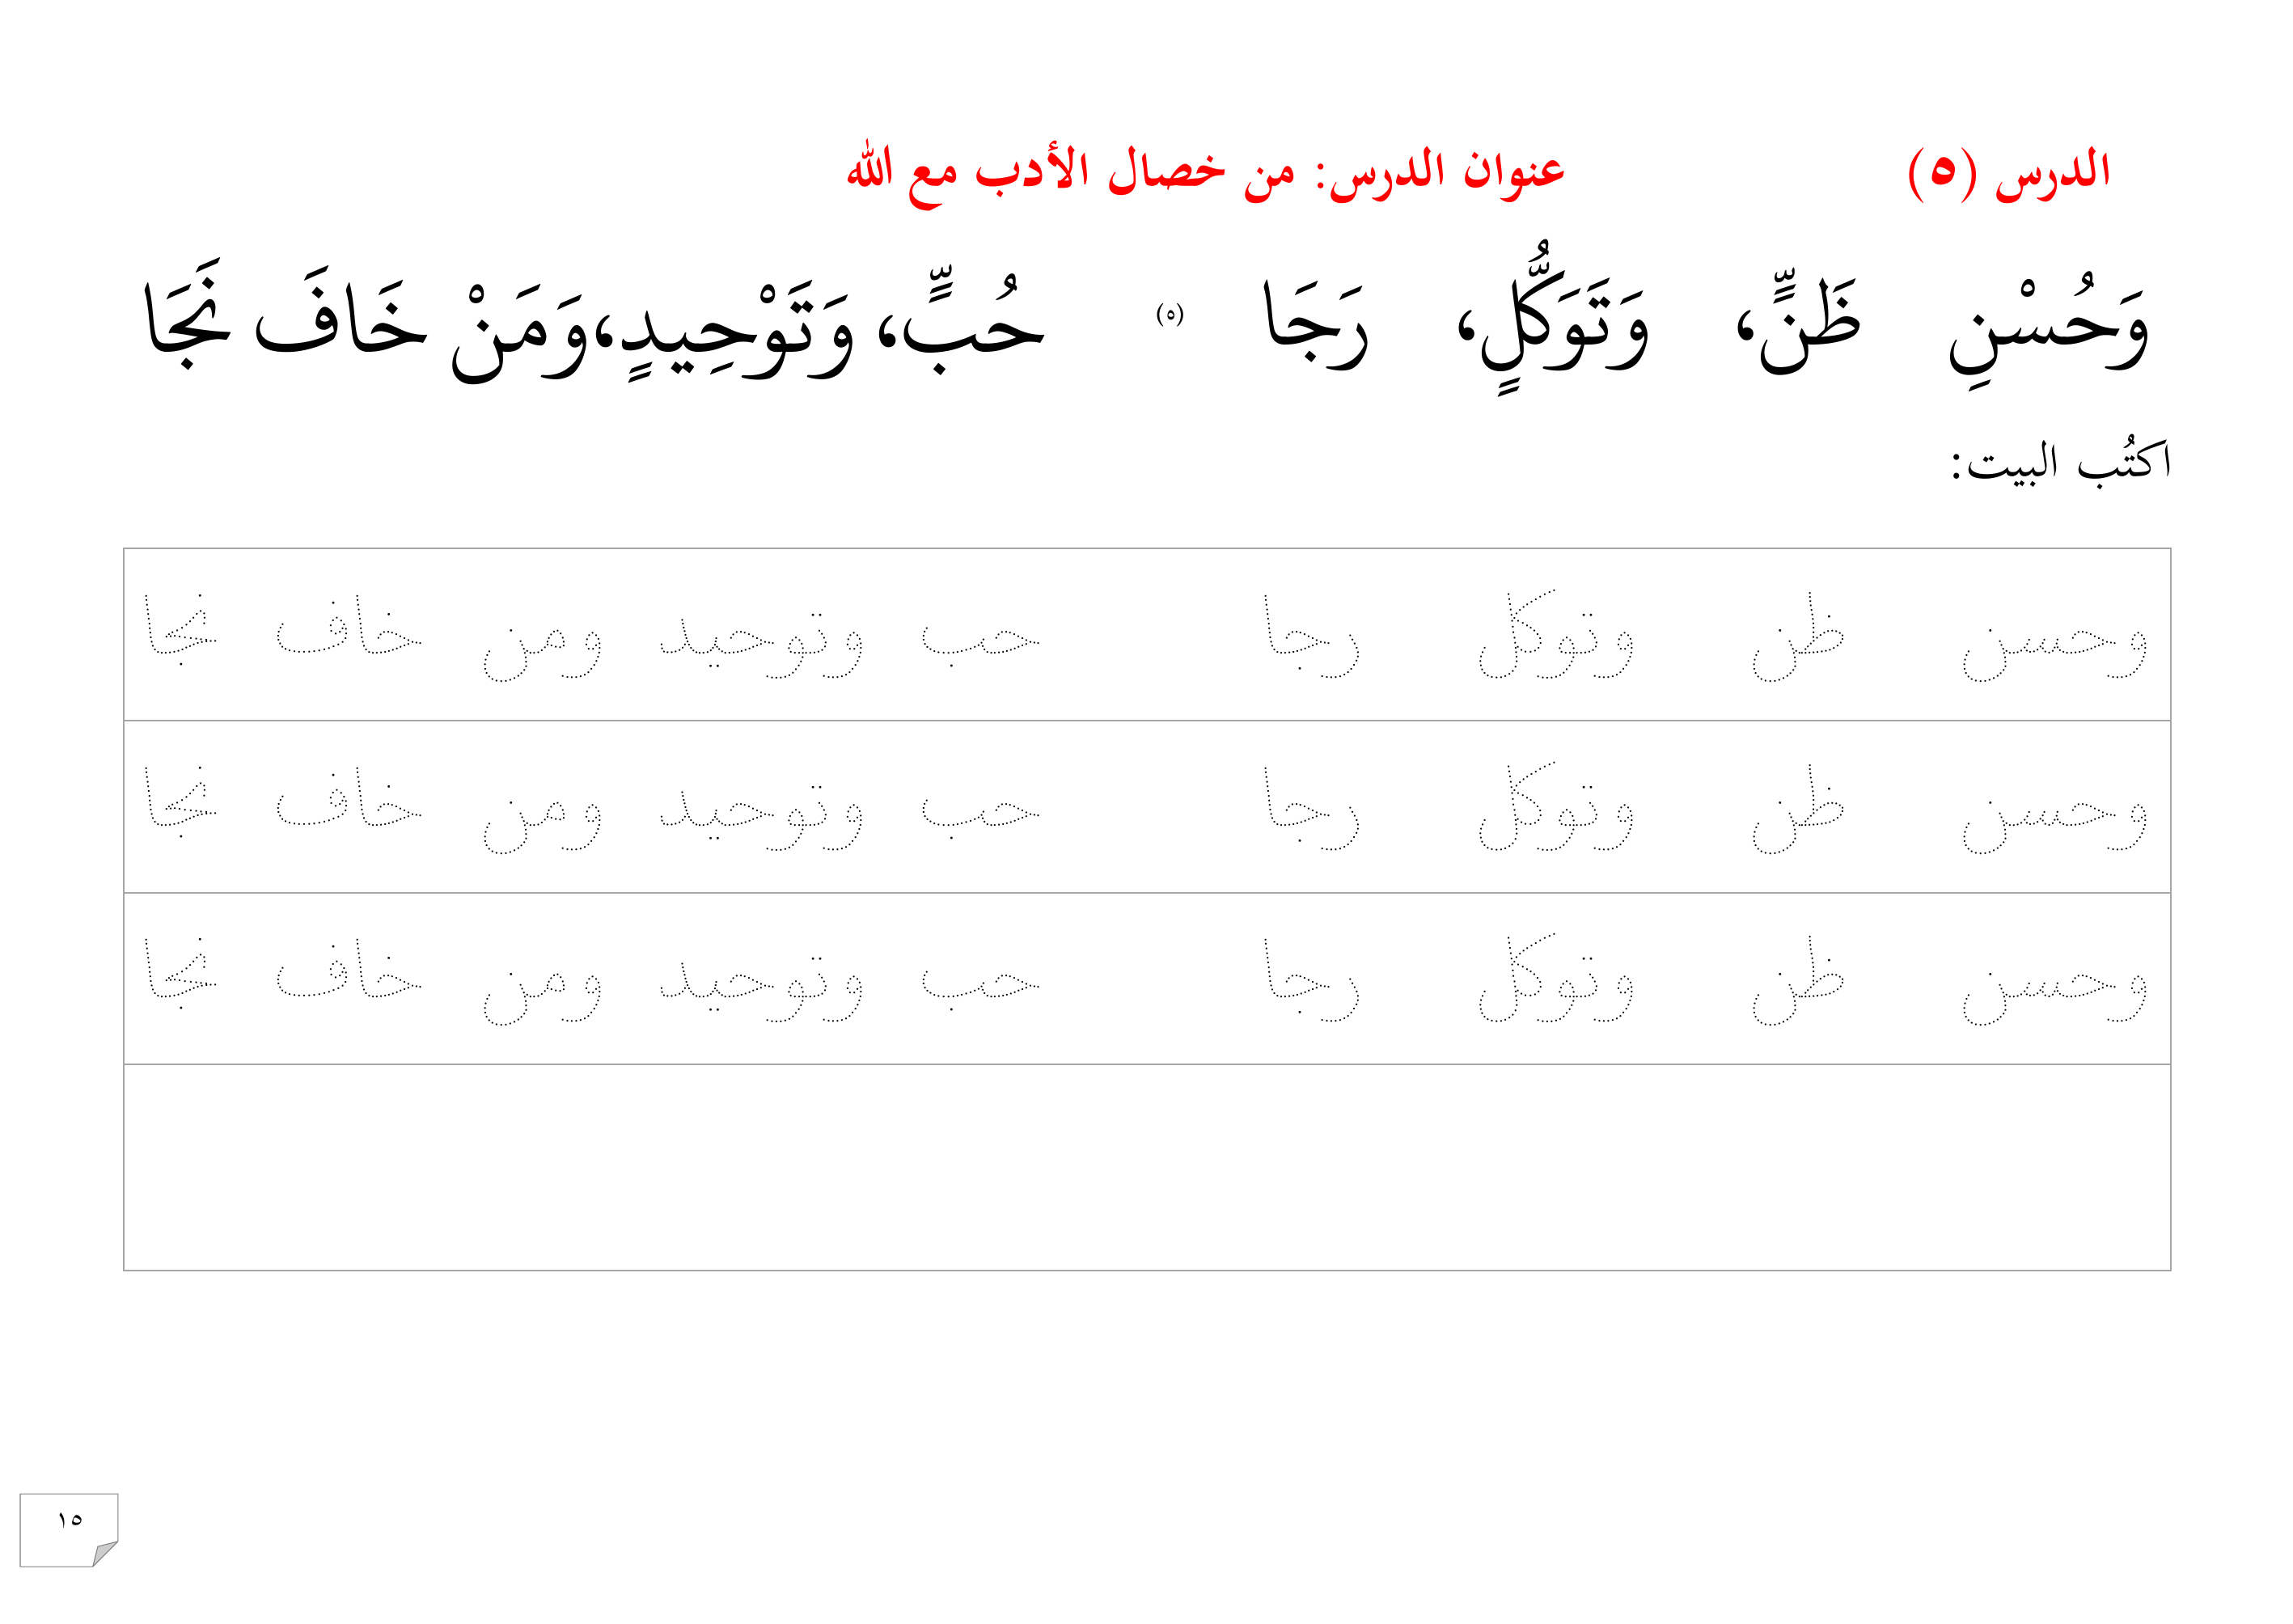 الدرس (٥) عنوان الدرس: من خصال الأدب مع الله
وَحُسْنِ ظَنٍّ، وَتَوَكُّلٍ، رَجَا (٥) حُبٍّ، وَتَوْحِيدٍ، وَمَنْ خَافَ نَجَا
اكتُب البيت:
وحسن ظن وتوكل رجا حب وتوحيد ومن خاف نجا
وحسن ظن وتوكل رجا حب وتوحيد ومن خاف نجا
وحسن ظن وتوكل رجا حب وتوحيد ومن خاف نجا
١٥